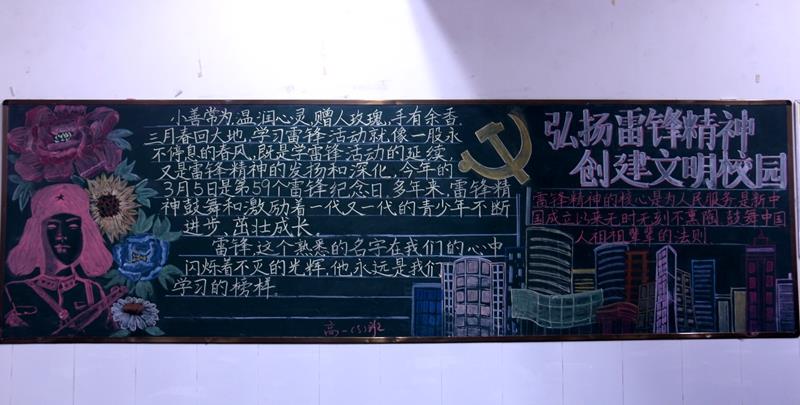 小善常为,温润心灵,赠人玫瑰,手有余香.
三月春回大地,学习雷锋活动就像一股永
不停息的春风,既是学雷锋活动的延续,
又是雷锋精神的发扬和深化,今年的
3月5日是第59个雷锋纪念日,多年来,雷锋精
神鼓舞和激励着一代又一代的青少年不断
进步,茁壮成长.
雷锋,这个熟悉的名字在我们的心中
闪烁着不灭的光辉,他永远是我们
学习的榜样.
高一(5)班
弘扬雷锋精神
创建文明校园
雷锋精神的核心是为人民服务是新中
国成立以来无时无刻不熏陶,鼓舞中国
人祖祖辈辈的法则